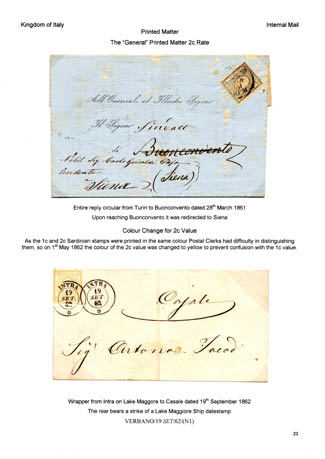 Kingdom of Italy
Internal Mail
Printed Matter
The "General" Printed Matter 2c Rate
All'Onorevole ed Illustre Signor
Il Signor Sindaco
di Buonconvento
(Siena)
Siena
Entire reply circular from Turin to Buonconvento dated 28th March 1861
Upon reaching Buonconvento it was redirected to Siena
Colour Change for 2c Value
As the 1c and 2c Sardinian stamps were printed in the same colour Postal Clerks had difficulty in distinguishing
them, so on 1st May 1862 the colour of the 2c value was changed to yellow to prevent confusion with the 1c value.
INTRA
19
SET
62
INTRA
19
SET
62
Casale
Sigr Antonio
Wrapper from Intra on Lake Maggiore to Casale dated 19th September 1862
The rear bears a strike of a Lake Maggiore Ship datestamp
VERBANO/19 SET/62/(N1)
23